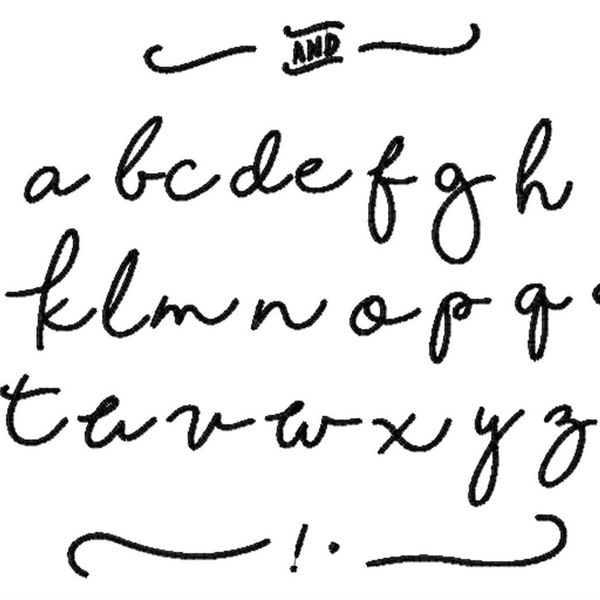 AND
a b c d e f g h
k l m n o p q
t u v w x y z
! .